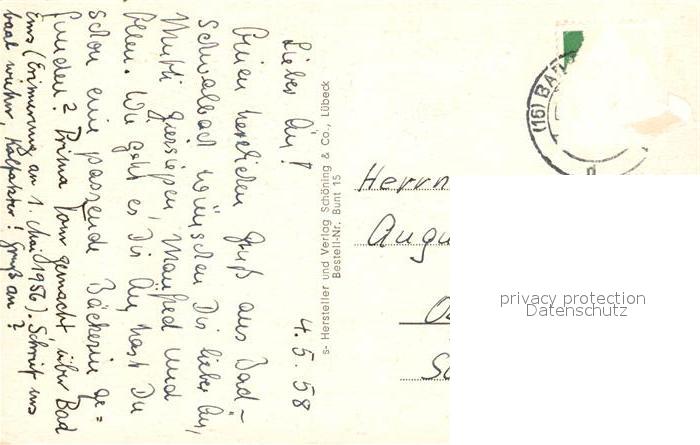 4. 5. 58
Lieber Aug!
Einen herzlichen Gruß aus Bad-
Schwalbach wünschen Dir lieber Aug,
Mutti Manfred und
Ellen. Wie geht es Dir Aug, hast Du
schon eine passende Bäckerin ge=
funden? Prima Tour gemacht über Bad
Ems (Erinnerung an 1. Mai 1956). Schreib uns
bald wieder, Gruß an ?
s- Hersteller und Verlag Schöning & Co., Lübeck
Bestell-Nr. Bunt 15
(16) BA
Herrn
Augu
privacy protection
Datenschutz